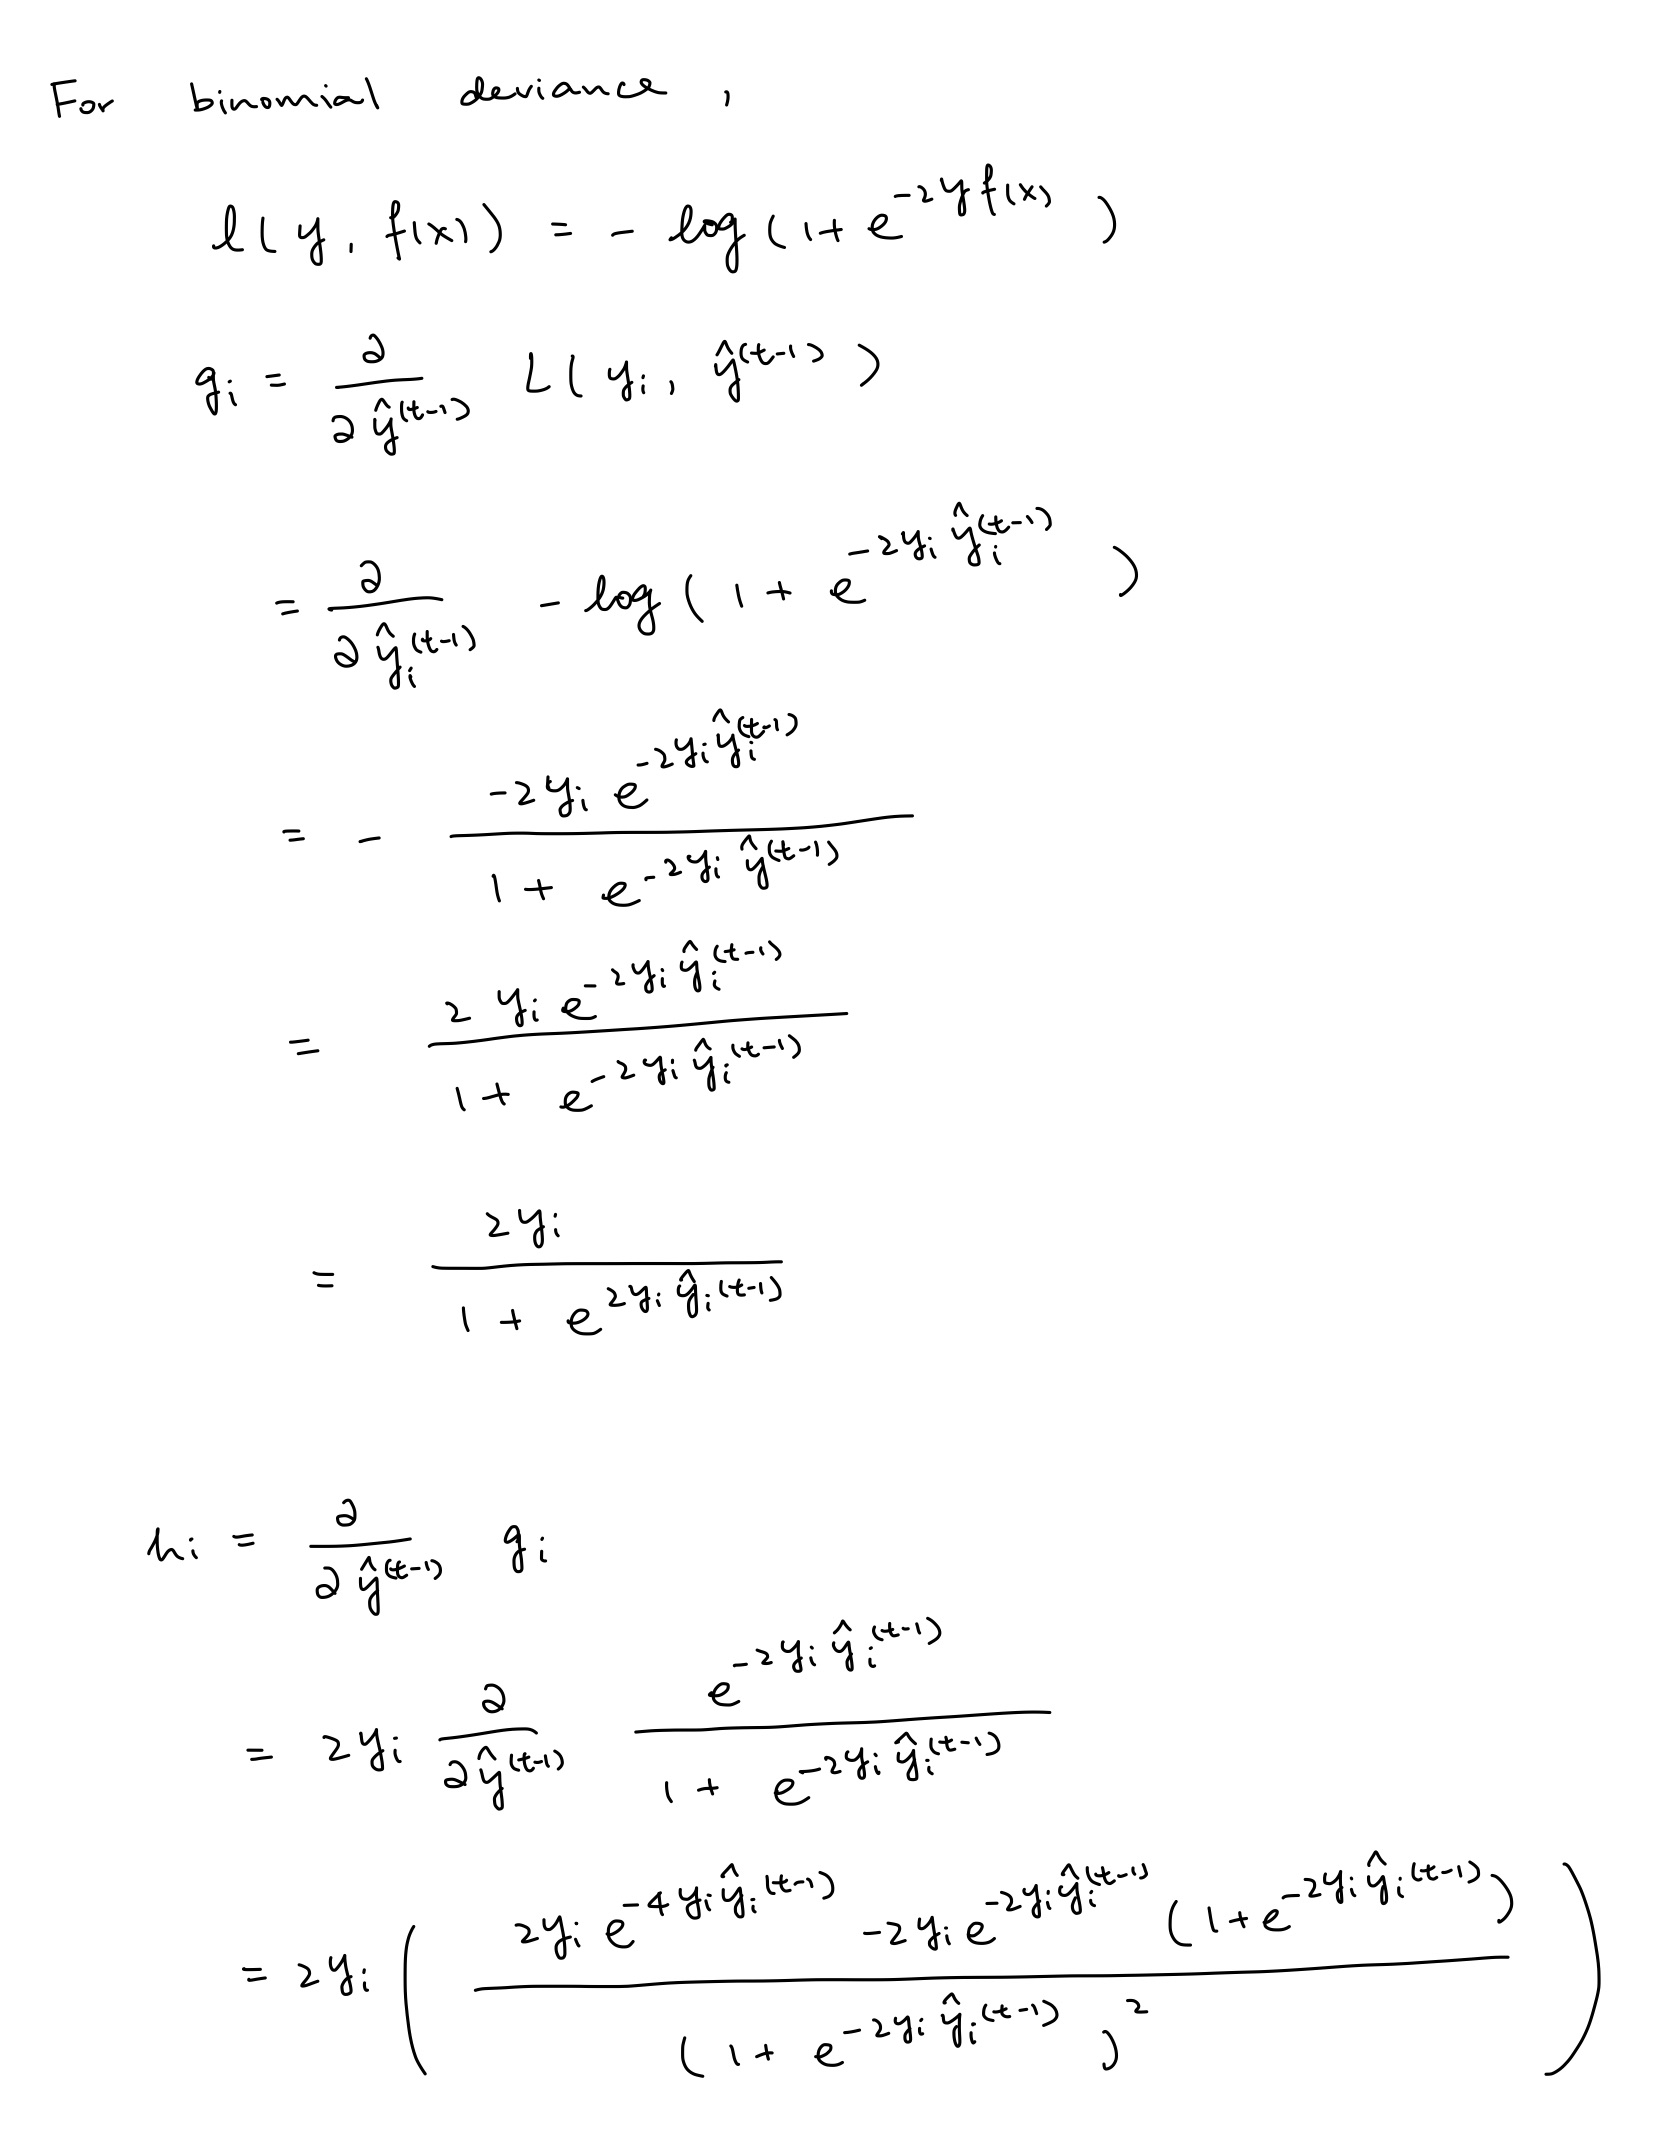 For binomial deviance,
l(y, f(x)) = - log(1+ e^{-2yf(x)})
g_i = ∂/∂ŷ^{(t-1)} L(y_i, ŷ^{(t-1)})
= ∂/∂ŷ_i^{(t-1)} - log(1 + e^{-2y_i ŷ_i^{(t-1)}})
= - (-2y_i e^{-2y_i ŷ_i^{(t-1)}}) / (1 + e^{-2y_i ŷ^{(t-1)}})
= (2y_i e^{-2y_i ŷ_i^{(t-1)}}) / (1 + e^{-2y_i ŷ_i^{(t-1)}})
= 2y_i / (1 + e^{2y_i ŷ_i^{(t-1)}})
h_i = ∂/∂ŷ^{(t-1)} g_i
= 2y_i ∂/∂ŷ^{(t-1)} e^{-2y_i ŷ_i^{(t-1)}} / (1 + e^{-2y_i ŷ_i^{(t-1)}})
= 2y_i ( (2y_i e^{-4y_i ŷ_i^{(t-1)}} -2y_i e^{-2y_i ŷ_i^{(t-1)}} (1+e^{-2y_i ŷ_i^{(t-1)}})) / (1 + e^{-2y_i ŷ_i^{(t-1)}})^2 )